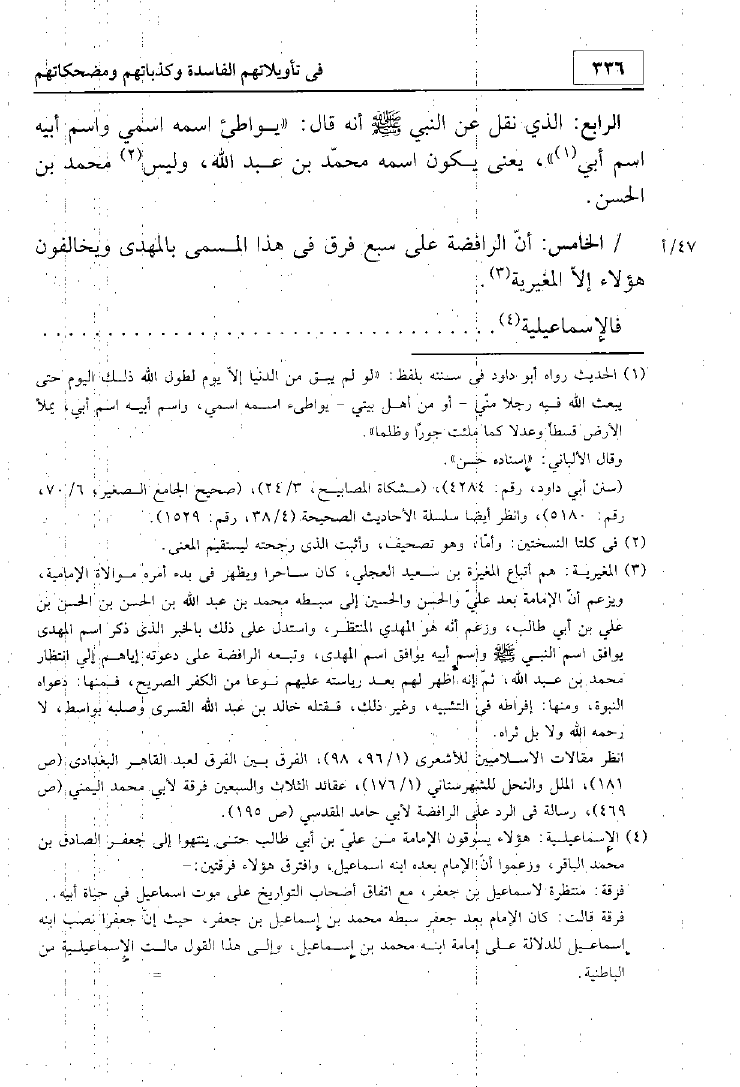 ٣٣٦
فى تأويلاتهم الفاسدة وكذباتهم ومضحكاتهم
الرابع: الذي نقل عن النبي ﷺ أنه قال: «يـواطئ اسمه اسمي واسم أبيه
اسم أبي(١)»، يعنى يـكون اسمه محمّد بن عـبد الله، وليس(٢) محمد بن
الحسن.
٤٧/أ / الخامس: أنّ الرافضة على سبع فرق فى هذا المـسمى بالمهدى ويخالفون
هؤلاء إلاّ المغيرية(٣).
فالإسماعيلية(٤)......................................
(١) الحديث رواه أبو داود فى سـننه بلفظ: «لو لم يبـق من الدنيا إلاّ يوم لطول الله ذلـك اليوم حتى
يبعث الله فيه رجلا منّي - أو من أهـل بيتي - يواطىء اسـمه اسمي، واسم أبيـه اسم أبي، يملأ
الأرض قسطاً وعدلا كما ملئت جورًا وظلما».
وقال الألباني: «إسناده حسن».
(سنن أبي داود، رقم: ٤٢٨٤)، (مـشكاة المصابيح، ٢٤/٣)، (صحيح الجامع الـصغير، ٧٠/٦،
رقم: ٥١٨٠)، وانظر أيضا سلسلة الأحاديث الصحيحة (٣٨/٤، رقم: ١٥٢٩).
(٢) فى كلتا النسختين: وأمّا، وهو تصحيف، وأثبت الذى رجحته ليستقيم المعنى.
(٣) المغيرية: هم أتباع المغيرة بن سعيد العجلي، كان سـاحرا ويظهر فى بدء أمره مـوالاة الإمامية،
ويزعم أنّ الإمامة بعد عليّ والحسن والحسين إلى سبطه محمد بن عبد الله بن الحسن بن الحسن بن
علي بن أبي طالب، وزعم أنه هو المهدي المنتظر، واستدل على ذلك بالخبر الذى ذكر اسم المهدى
يوافق اسم النبي ﷺ واسم أبيه يوافق اسم المهدى، وتبعه الرافضة على دعوته إياهم إلى انتظار
محمد بن عـبد الله، ثمّ إنه أظهر لهم بعـد رياسته عليهم نـوعا من الكفر الصريح، فـمنها: دعواه
النبوة، ومنها: إفراطه فى التشبيه، وغير ذلك، فـقتله خالد بن عبد الله القسرى وصلبه بواسط، لا
رحمه الله ولا بل ثراه.
انظر مقالات الاسـلاميين للأشعرى (٩٦/١، ٩٨)، الفرق بـين الفرق لعبد القاهر البغدادى (ص
١٨١)، الملل والنحل للشهرستاني (١٧٦/١)، عقائد الثلاث والسبعين فرقة لأبي محمد اليمني (ص
٤٦٩)، رسالة فى الرد على الرافضة لأبي حامد المقدسي (ص ١٩٥).
(٤) الإسماعيلية: هؤلاء يسوقون الإمامة مـن عليّ بن أبي طالب حتـى ينتهوا إلى جعفـر الصادق بن
محمد الباقر، وزعموا أنّ الإمام بعده ابنه اسماعيل، وافترق هؤلاء فرقتين:-
فرقة: منتظرة لاسماعيل بن جعفر، مع اتفاق أصحاب التواريخ على موت اسماعيل في حياة أبيه.
فرقة قالت: كان الإمام بعد جعفر سبطه محمد بن إسماعيل بن جعفر، حيث إنّ جعفرا نصب ابنه
إسماعـيل للدلالة عـلى إمامة ابنـه محمد بن إسـماعيل، وإلـى هذا القول مالـت الإسماعيلـية من
الباطنية. =